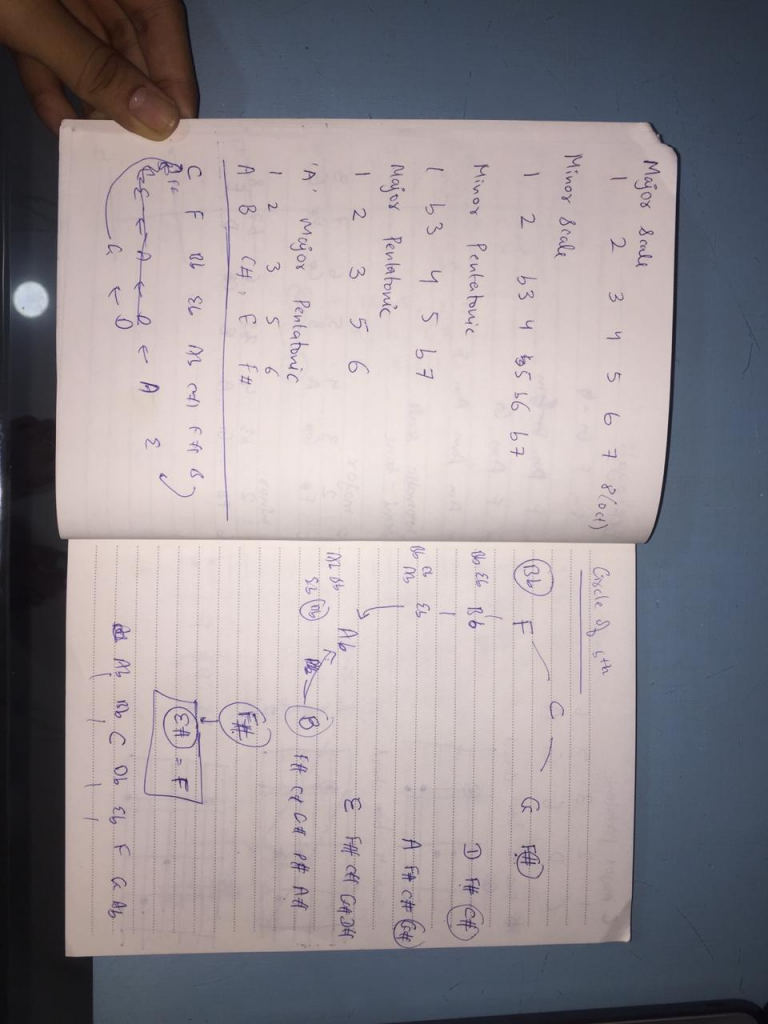 Major Scale
1 2 3 4 5 6 7 8(oct)
Minor Scale
1 2 b3 4 b5 b6 b7
Minor Pentatonic
1 b3 4 5 b7
Major Pentatonic
1 2 3 5 6
'A' Major Pentatonic
1 2 3 5 6
A B C#, E F#
C F Bb Eb Ab C# F# B
← A ← D ← A E
G ← D
Circle of 5th
Bb F C G F#
Db Eb Bb D F# C#
Eb A F# C# G#
Ab E F# C# G# D#
B F# C# G# D# A#
F#
E# = F
Ab Bb C Db Eb F G Ab